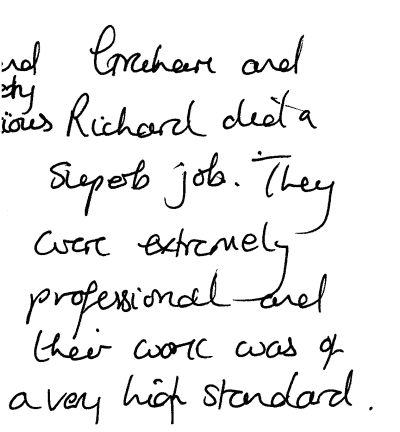 Graham and
Richard did a
superb job. They
were extremely
professional and
their work was of
a very high standard.